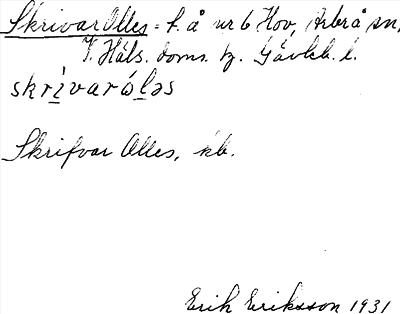 Skrivar Olles = f. å nr 6 Hov, Arbrå sn,
V. Häls. doms. hg. Gävleb. l.
skrivarólǝs
Skrifvar Olles, kb.
Erik Eriksson 1931